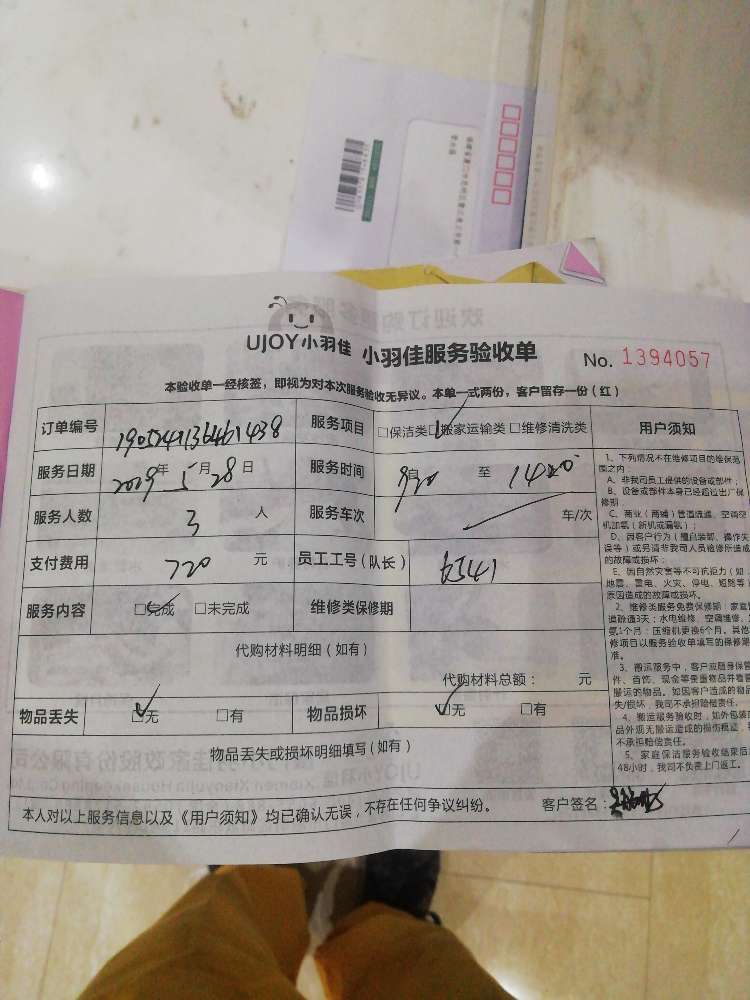 UJOY小羽佳 小羽佳服务验收单 No. 1394057
本验收单一经核签，即视为对本次服务验收无异议。本单一式两份，客户留存一份（红）
订单编号 服务项目 □保洁类□搬家运输类□维修清洗类 用户须知
服务日期 2019年5月28日 服务时间 至 1420
服务人数 3 人 服务车次 车/次
支付费用 720 元 员工工号(队长)
服务内容 □完成 □未完成 维修类保修期
代购材料明细（如有）
代购材料总额： 元
物品丢失 □无 □有 物品损坏 □无 □有
物品丢失或损坏明细填写（如有）
本人对以上服务信息以及《用户须知》均已确认无误，不存在任何争议纠纷。 客户签名：
1、下列情况不在维修项目的维保范
围之内：
A、非我司员工提供的设备或部件；
B、设备或部件本身已经超过出厂保
修期
C、商业（商铺）管道疏通、空调空
机加氨（新机或漏氨）；
D、因客户行为（擅自装卸、操作失
误等）或另请非我司人员检修所造成
的故障或损坏；
E、因自然灾害等不可抗拒力（如
地震、雷电、火灾、停电、短路等）
原因造成的故障或损坏。
2、维修类服务免费保修期：家庭管
道疏通3天；水电维修、空调维修、
氨1个月；压缩机更换6个月。其他
修项目以服务验收单填写的保修期
准。
3、搬运服务中，客户应随身保管
件、首饰、现金等贵重物品并看管
搬运的物品。如因客户造成的物品
失/损坏，我司不承担赔偿责任。
4、搬运服务验收时，如外包装
品外观无搬运造成的损伤痕迹，
不承担赔偿责任。
5、家庭保洁服务验收结束后
48小时，我司不负责上门返工。